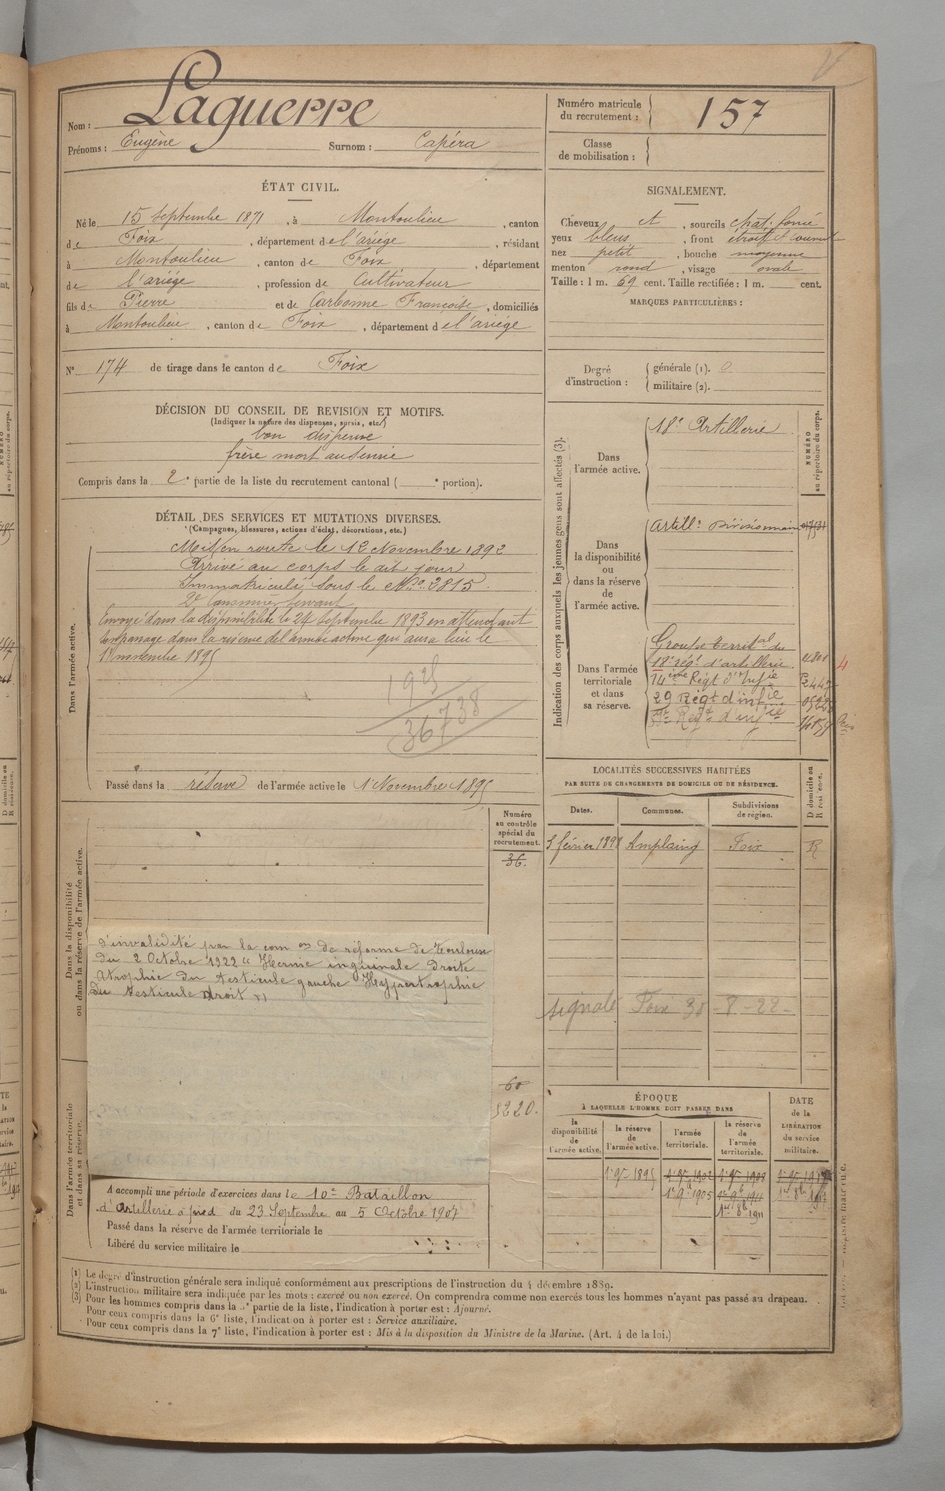 Nom : Laguerre
Prénoms : Eugène Surnom : Capéra
Numéro matricule
du recrutement : 157
Classe
de mobilisation :
ÉTAT CIVIL.
Né le 15 Septembre 1871, à Montoulieu, canton
de Foix, département de l'ariége, résidant
à Montoulieu, canton de Foix, département
de l'ariége, profession de Cultivateur
fils de Pierre et de Carbonne Françoise, domiciliés
à Montoulieu, canton de Foix, département de l'ariége
N° 174 de tirage dans le canton de Foix
SIGNALEMENT.
Cheveux et, sourcils chât. foncé
yeux bleus, front étroit et ouvert
nez petit, bouche moyenne
menton rond, visage ovale
Taille : 1 m. 69 cent. Taille rectifiée : 1 m. cent.
MARQUES PARTICULIÈRES :
Degré
d'instruction :
générale (1). 0
militaire (2).
DÉCISION DU CONSEIL DE REVISION ET MOTIFS.
(Indiquer la nature des dispenses, sursis, etc.)
bon dispensé
frère mort au service
Compris dans la 2e partie de la liste du recrutement cantonal ( e portion).
DÉTAIL DES SERVICES ET MUTATIONS DIVERSES.
(Campagnes, blessures, actions d'éclat, décorations, etc.)
Dans l'armée active.
Mis en route le 12 Novembre 1892
Arrivé au corps le dit jour
Immatriculé sous le No 2815.
2e Canonnier servant
Envoyé dans la disponibilité le 24 Septembre 1893 en attendant
son passage dans la réserve de l'armée active qui aura lieu le
1er novembre 1895
36738
Passé dans la réserve de l'armée active le 1er Novembre 1895
Indication des corps auxquels les jeunes gens sont affectés (3).
NUMÉRO
au répertoire du corps.
Dans
l'armée active.
18e Artillerie
Dans
la disponibilité
ou
dans la réserve
de
l'armée active.
Artillie Divisionnaire
Dans l'armée
territoriale
et dans
sa réserve.
Groupe territal du
18e régt d'artillerie
14ème Régt d'Infie
29 Régt d'infie
Régt d'infie
LOCALITÉS SUCCESSIVES HABITÉES
PAR SUITE DE CHANGEMENTS DE DOMICILE OU DE RÉSIDENCE.
Dates. Communes. Subdivisions
de région. D domicile ou
R résidence.
3 février 1898 Amplaing Foix R
signalé Foix 30 - 8 - 22 -
Numéro
au contrôle
spécial du
recrutement.
36.
Dans la disponibilité
ou dans la réserve de l'armée active.
d'invalidité par la com on de réforme de Toulouse
du 2 Octobre 1922 " Hernie inguinale droite
atrophie du testicule gauche Hypertrophie
du testicule droit "
60
1220.
Dans l'armée territoriale
et dans sa réserve.
A accompli une période d'exercices dans le 10me Bataillon
d'Artillerie à pied du 23 Septembre au 5 Octobre 1907
Passé dans la réserve de l'armée territoriale le
Libéré du service militaire le
ÉPOQUE
À LAQUELLE L'HOMME DOIT PASSER DANS
la
disponibilité
de
l'armée active.
la réserve
de
l'armée active.
l'armée
territoriale.
la réserve
de
l'armée
territoriale.
DATE
de la
LIBÉRATION
du service
militaire.
(1) Le degré d'instruction générale sera indiqué conformément aux prescriptions de l'instruction du 4 décembre 1889.
(2) L'instruction militaire sera indiquée par les mots : exercé ou non exercé. On comprendra comme non exercés tous les hommes n'ayant pas passé au drapeau.
(3) Pour les hommes compris dans la 5e partie de la liste, l'indication à porter est : Ajourné.
Pour ceux compris dans la 6e liste, l'indication à porter est : Service auxiliaire.
Pour ceux compris dans la 7e liste, l'indication à porter est : Mis à la disposition du Ministre de la Marine. (Art. 4 de la loi.)